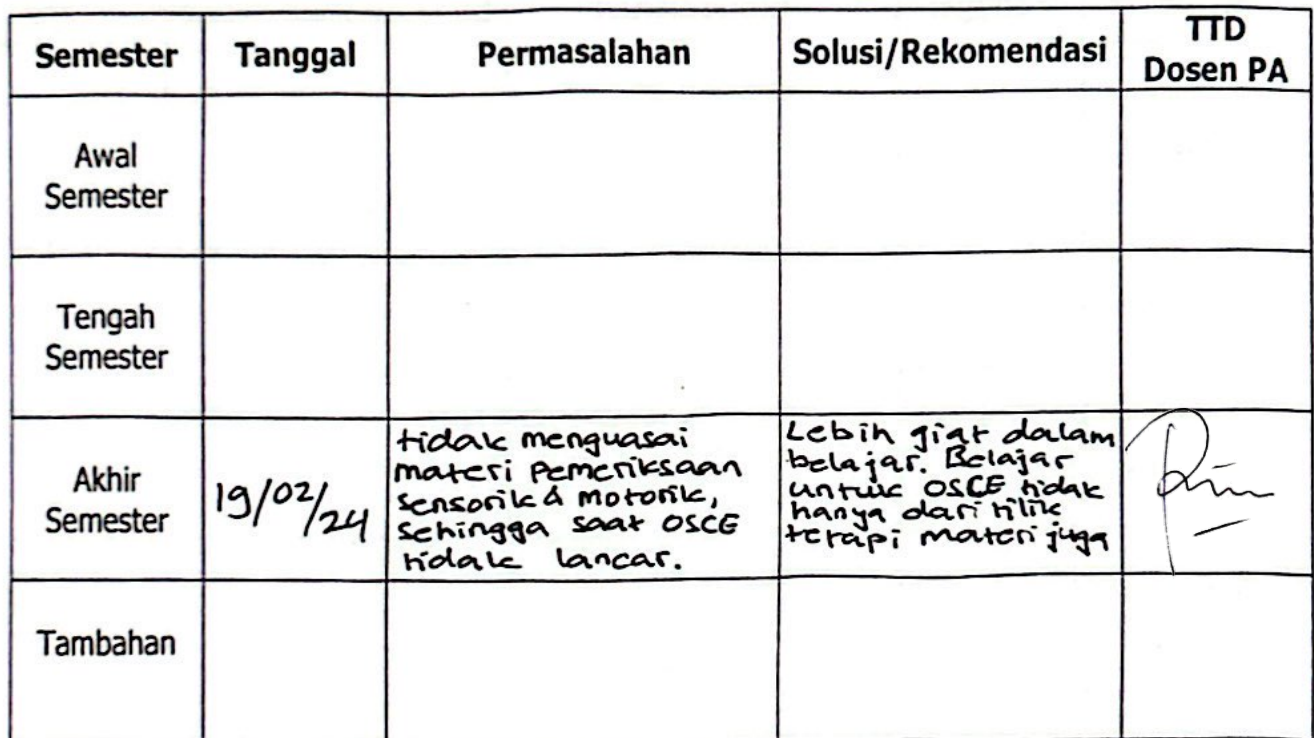 Semester Tanggal Permasalahan Solusi/Rekomendasi TTD Dosen PA
Awal
Semester
Tengah
Semester
Akhir
Semester
19/02/24
tidak menguasai
materi pemeriksaan
sensorik & motorik,
sehingga saat OSCE
tidak lancar.
Lebih giat dalam
belajar. Belajar
untuk OSCE tidak
hanya dari tilik
tetapi materi juga
Tambahan